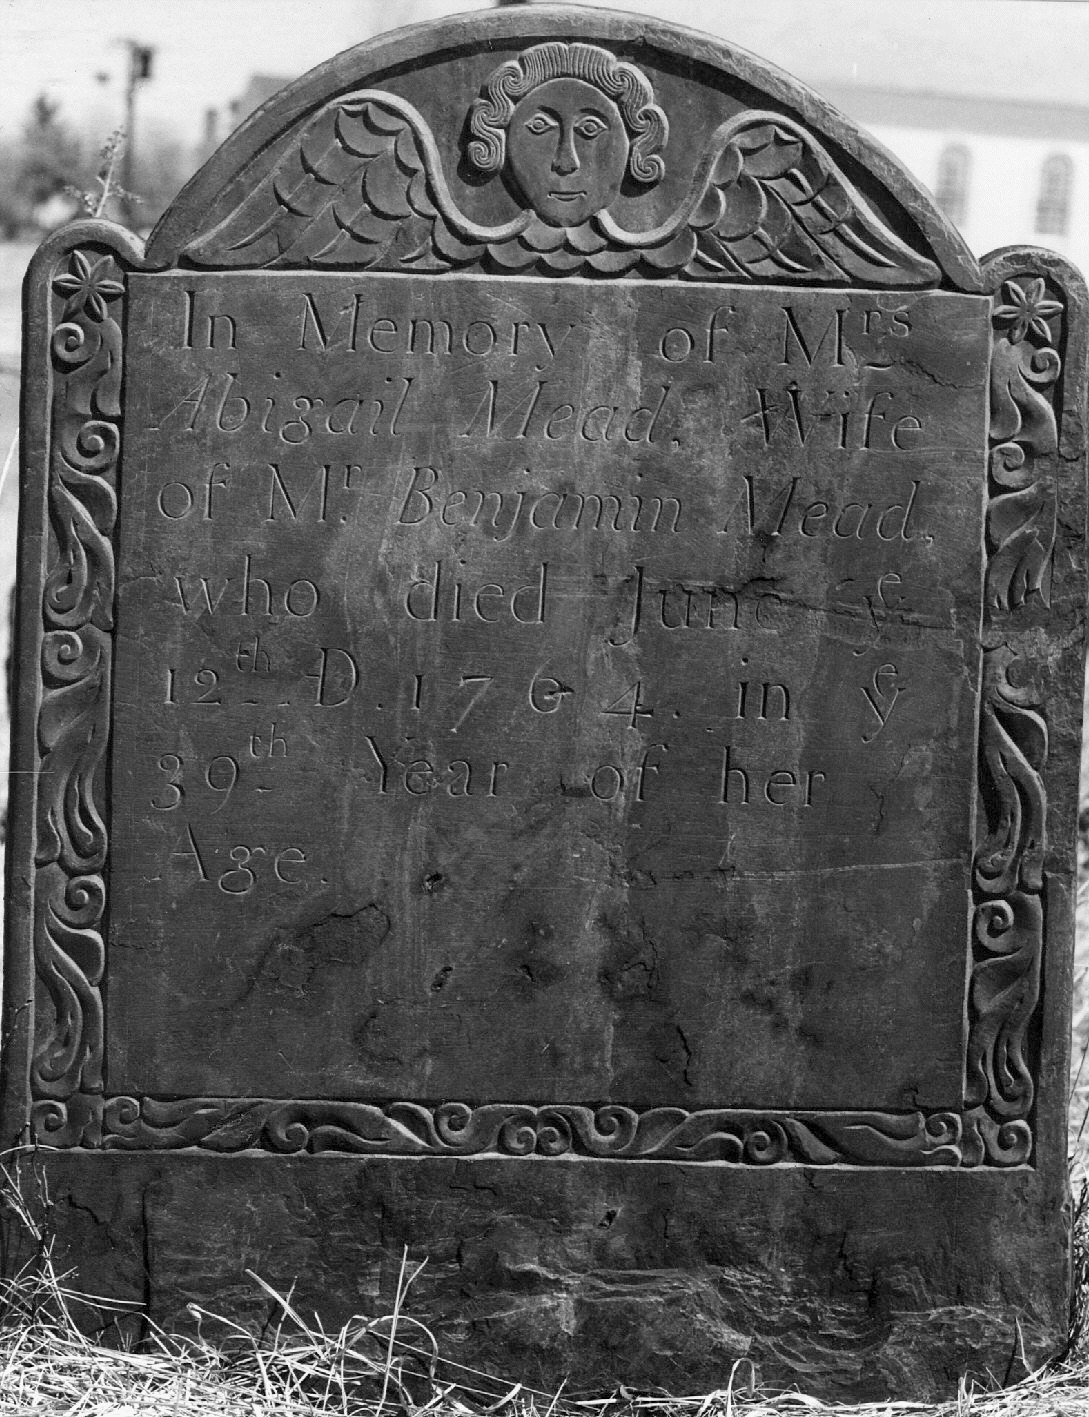 In Memory of Mrs
Abigail Mead, Wife
of Mr. Benjamin Mead,
who died June ye
12th D. 1764. in ye
39th Year of her
Age.